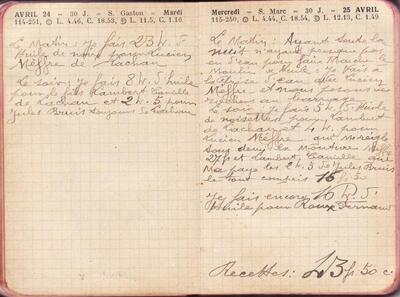 AVRIL 24 — 30 J. - S. Gaston - Mardi
115-251, L. 4.46, C. 18.53, L. 11.5, C. 1.10
Le Matin: Je fais 23 K. 5
Huile de noix pour Lucien
Mèffre de Cachan
Le soir; Je fais 8 K. 5 huile
pour le fils Lambert Camille
de Cachan et 2 K. 5 pour
Jules Bruis Cachan
Mercredi - S. Marc - 30 J. - 25 AVRIL
115-250, L. 4.44, C. 18.54, L. 12.13, C. 1.49
Le Matin: Ayant toute la
nuit n'ayant presque pas
eu d'eau pour faire Marcher le
Moulin à Huile Je vais à
la prise d'eau avec Lucien
Mèffre et nous posons
au barrage
Le soir: Je fais 5 K. 5 Huile
de noisettes pour Lambert
de Cachan et 4 K. pour
Lucien Mèffre qui
tous deux la Mouture Mèffre
27 f et Lambert Camille qui
Ma payé les 2 K. 5 de Jules Bruis
le tout compris 16 f. 5
Je fais encore 10 K. 5
Huile pour Roux Fernand
Recettes: 43 fr 50 c.